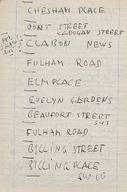 CHESHAM PLACE
PONT STREET
CADOGAN STREET
CLABON MEWS
FULHAM ROAD
ELM PLACE
EVELYN GARDENS
BEAUFORT STREET
FULHAM ROAD
BILLING STREET
BILLING PLACE